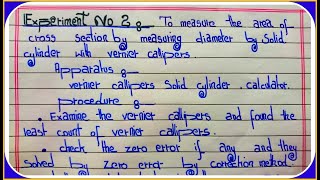 Experiment No 2 :- To measure the area of
cross section by measuring diameter by Solid
cylinder with vernier callipers.
Apparatus :-
vernier callipers Solid cylinder, calculator.
procedure :-
• Examine the vernier callipers and found the
least count of vernier callipers.
• check the zero error if any and they
solved by zero error by correction method